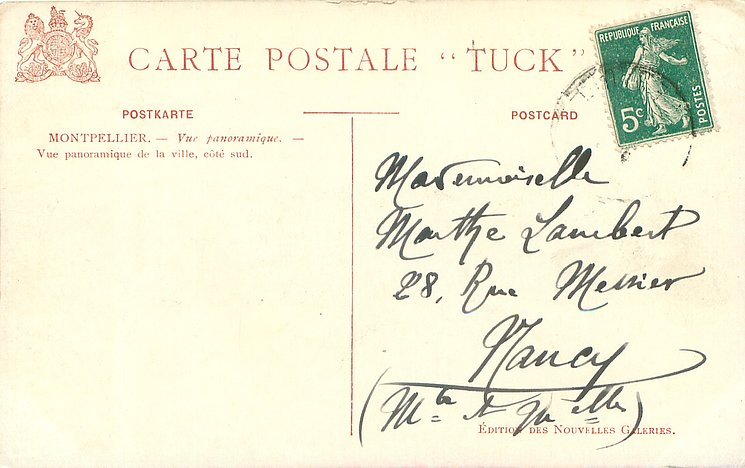 CARTE POSTALE “TUCK”
RÉPUBLIQUE FRANÇAISE
5c
POSTES
POSTKARTE
POSTCARD
MONTPELLIER. — Vue panoramique. —
Vue panoramique de la ville, côté sud.
Mademoiselle
Marthe Lambert
28, Rue Messier
Nancy
(Mthe et Melle)
ÉDITION DES NOUVELLES GALERIES.